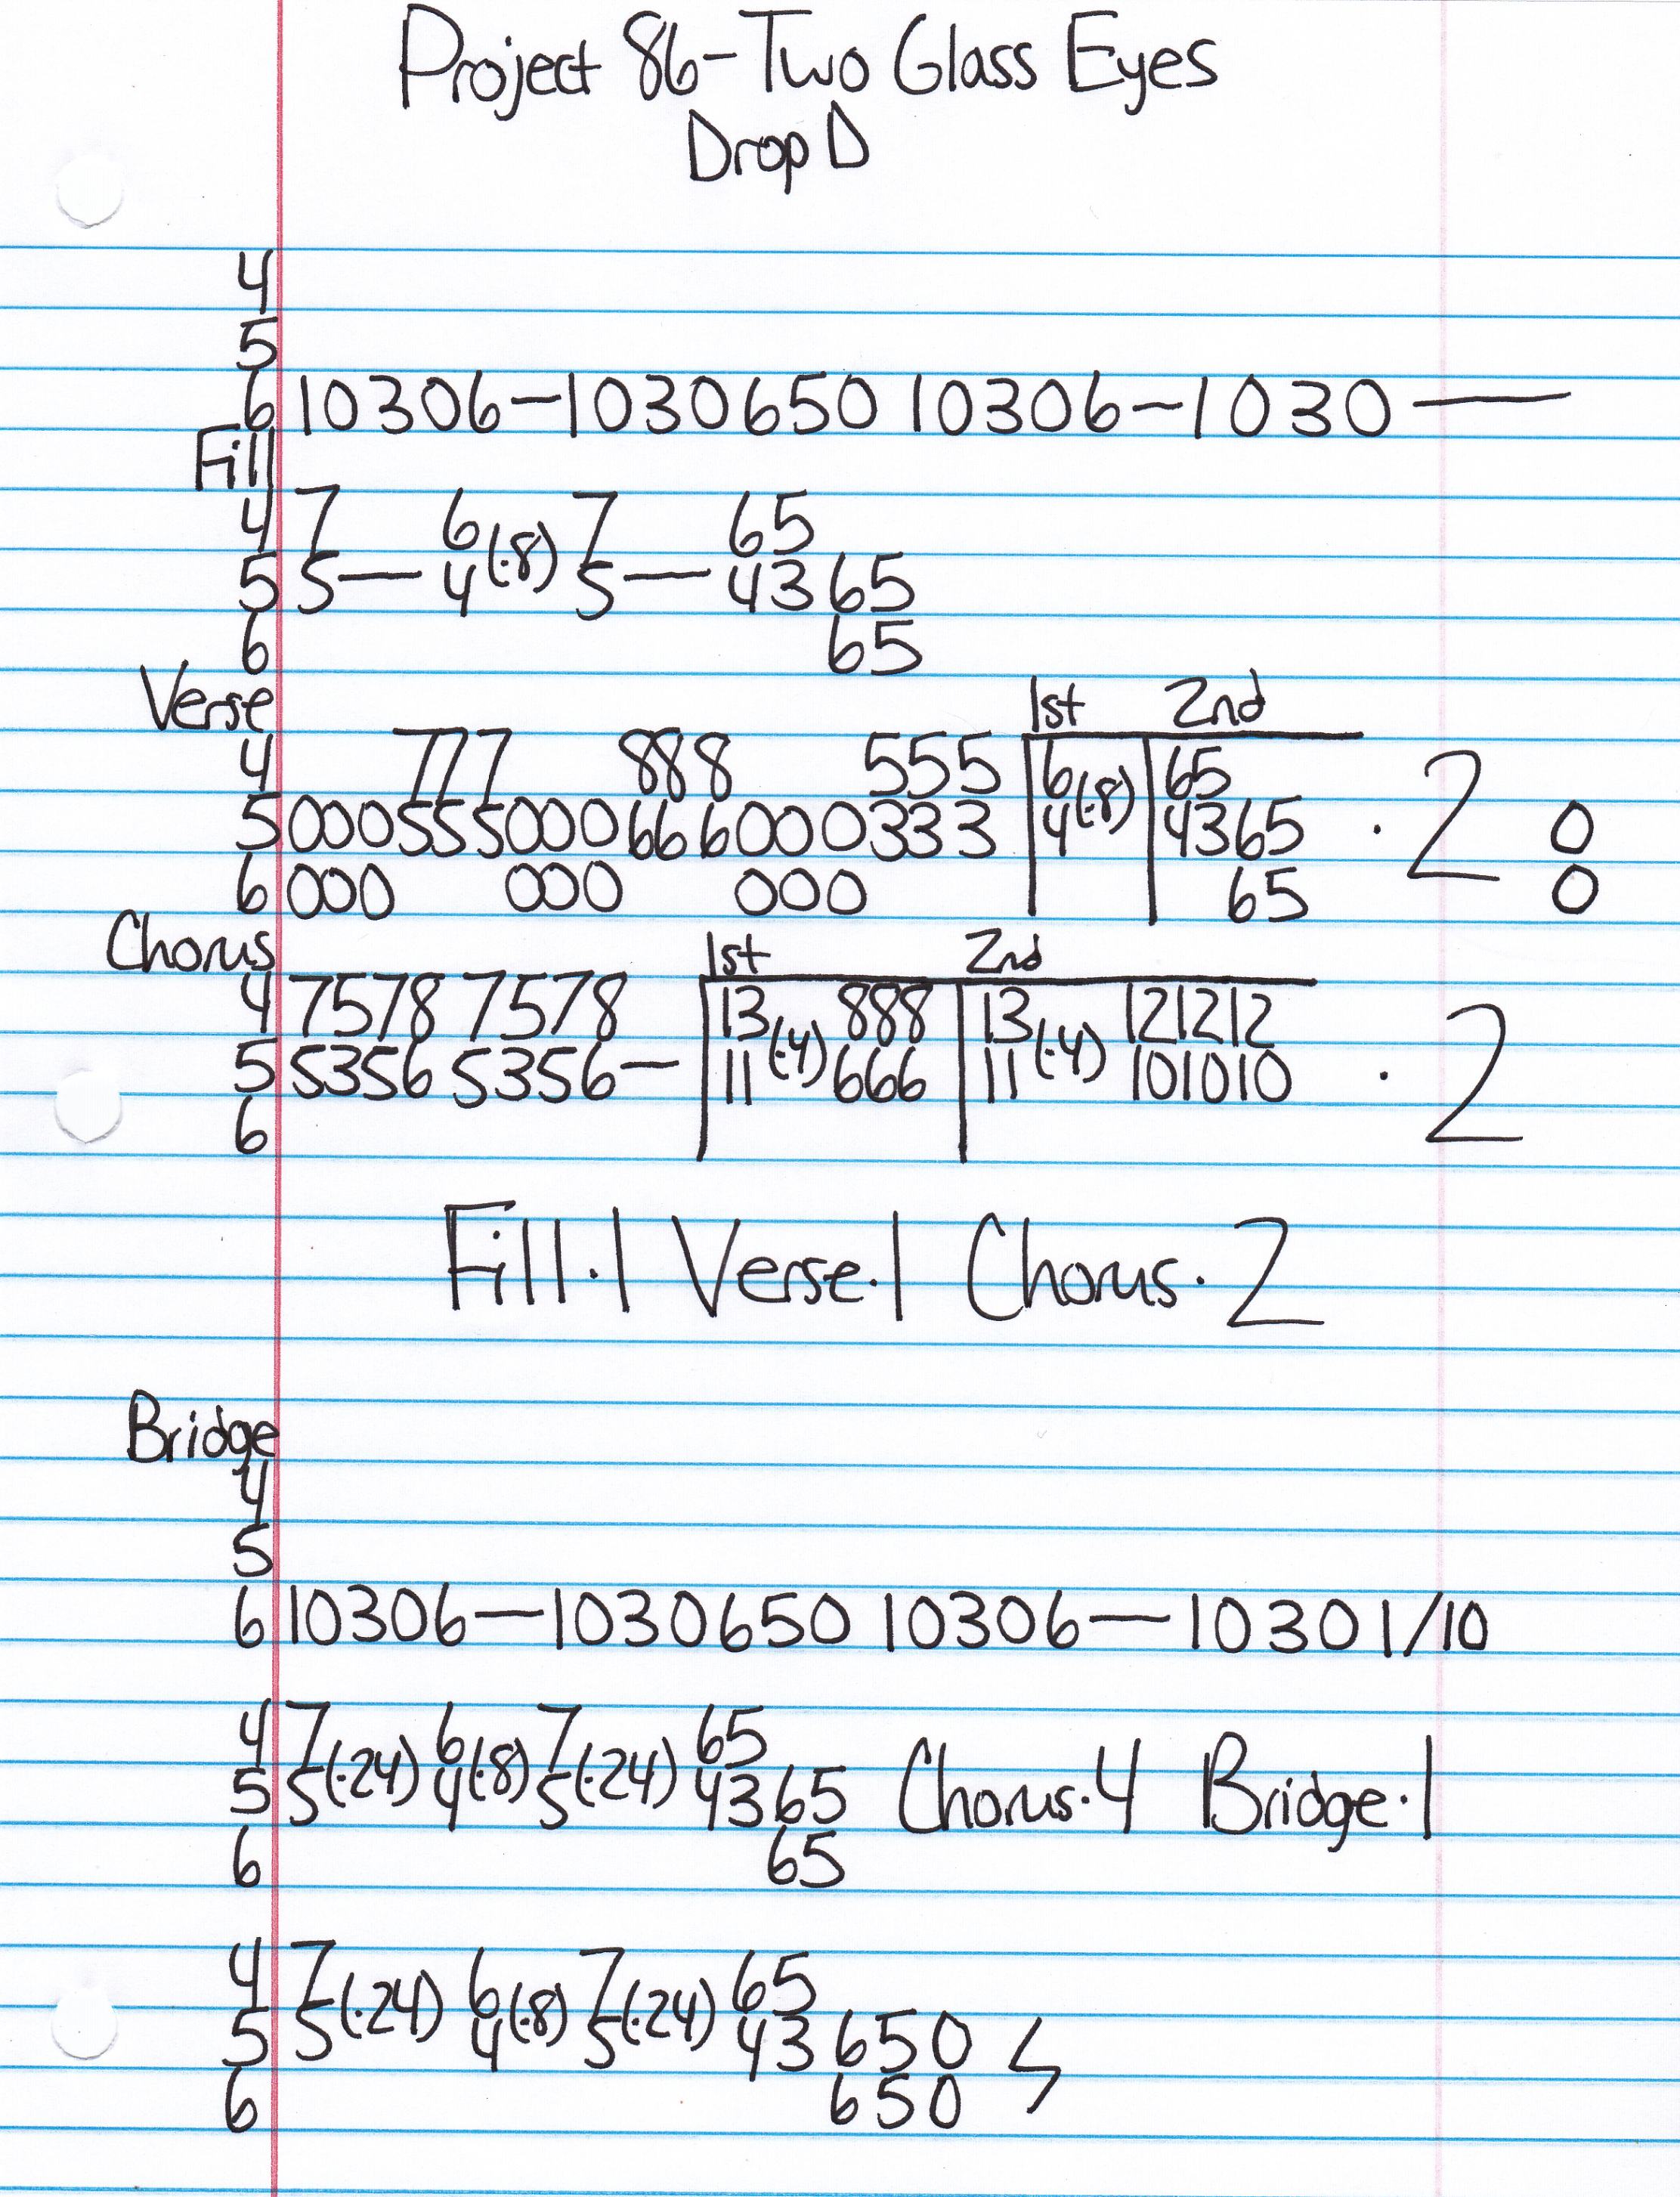 Project 86-Two Glass Eyes
Drop D
4
5
6 10306-1030650 10306-1030-
Fill
4 7 6 7 65
5 5-4(·8)5-43 65
6 65
Verse 1st 2nd
4 777 888 555 6 65
5 000555000666000333 4(·8) 4365 ·2 0
6 000 000 000 65 0
Chorus 1st 2nd
4 7578 7578 13 888 13 121212
5 5356 5356- 11(·4)666 11(·4) 101010 ·2
6
Fill·1 Verse·1 Chorus·2
Bridge
4
5
6 10306-1030650 10306-10301/10
4 7 6 7 65
5 5(·24)4(·8)5(·24)4365 Chorus·4 Bridge·1
6 65
4 7 6 7 65
5 5(·24)4(·8)5(·24)43 650
6 650